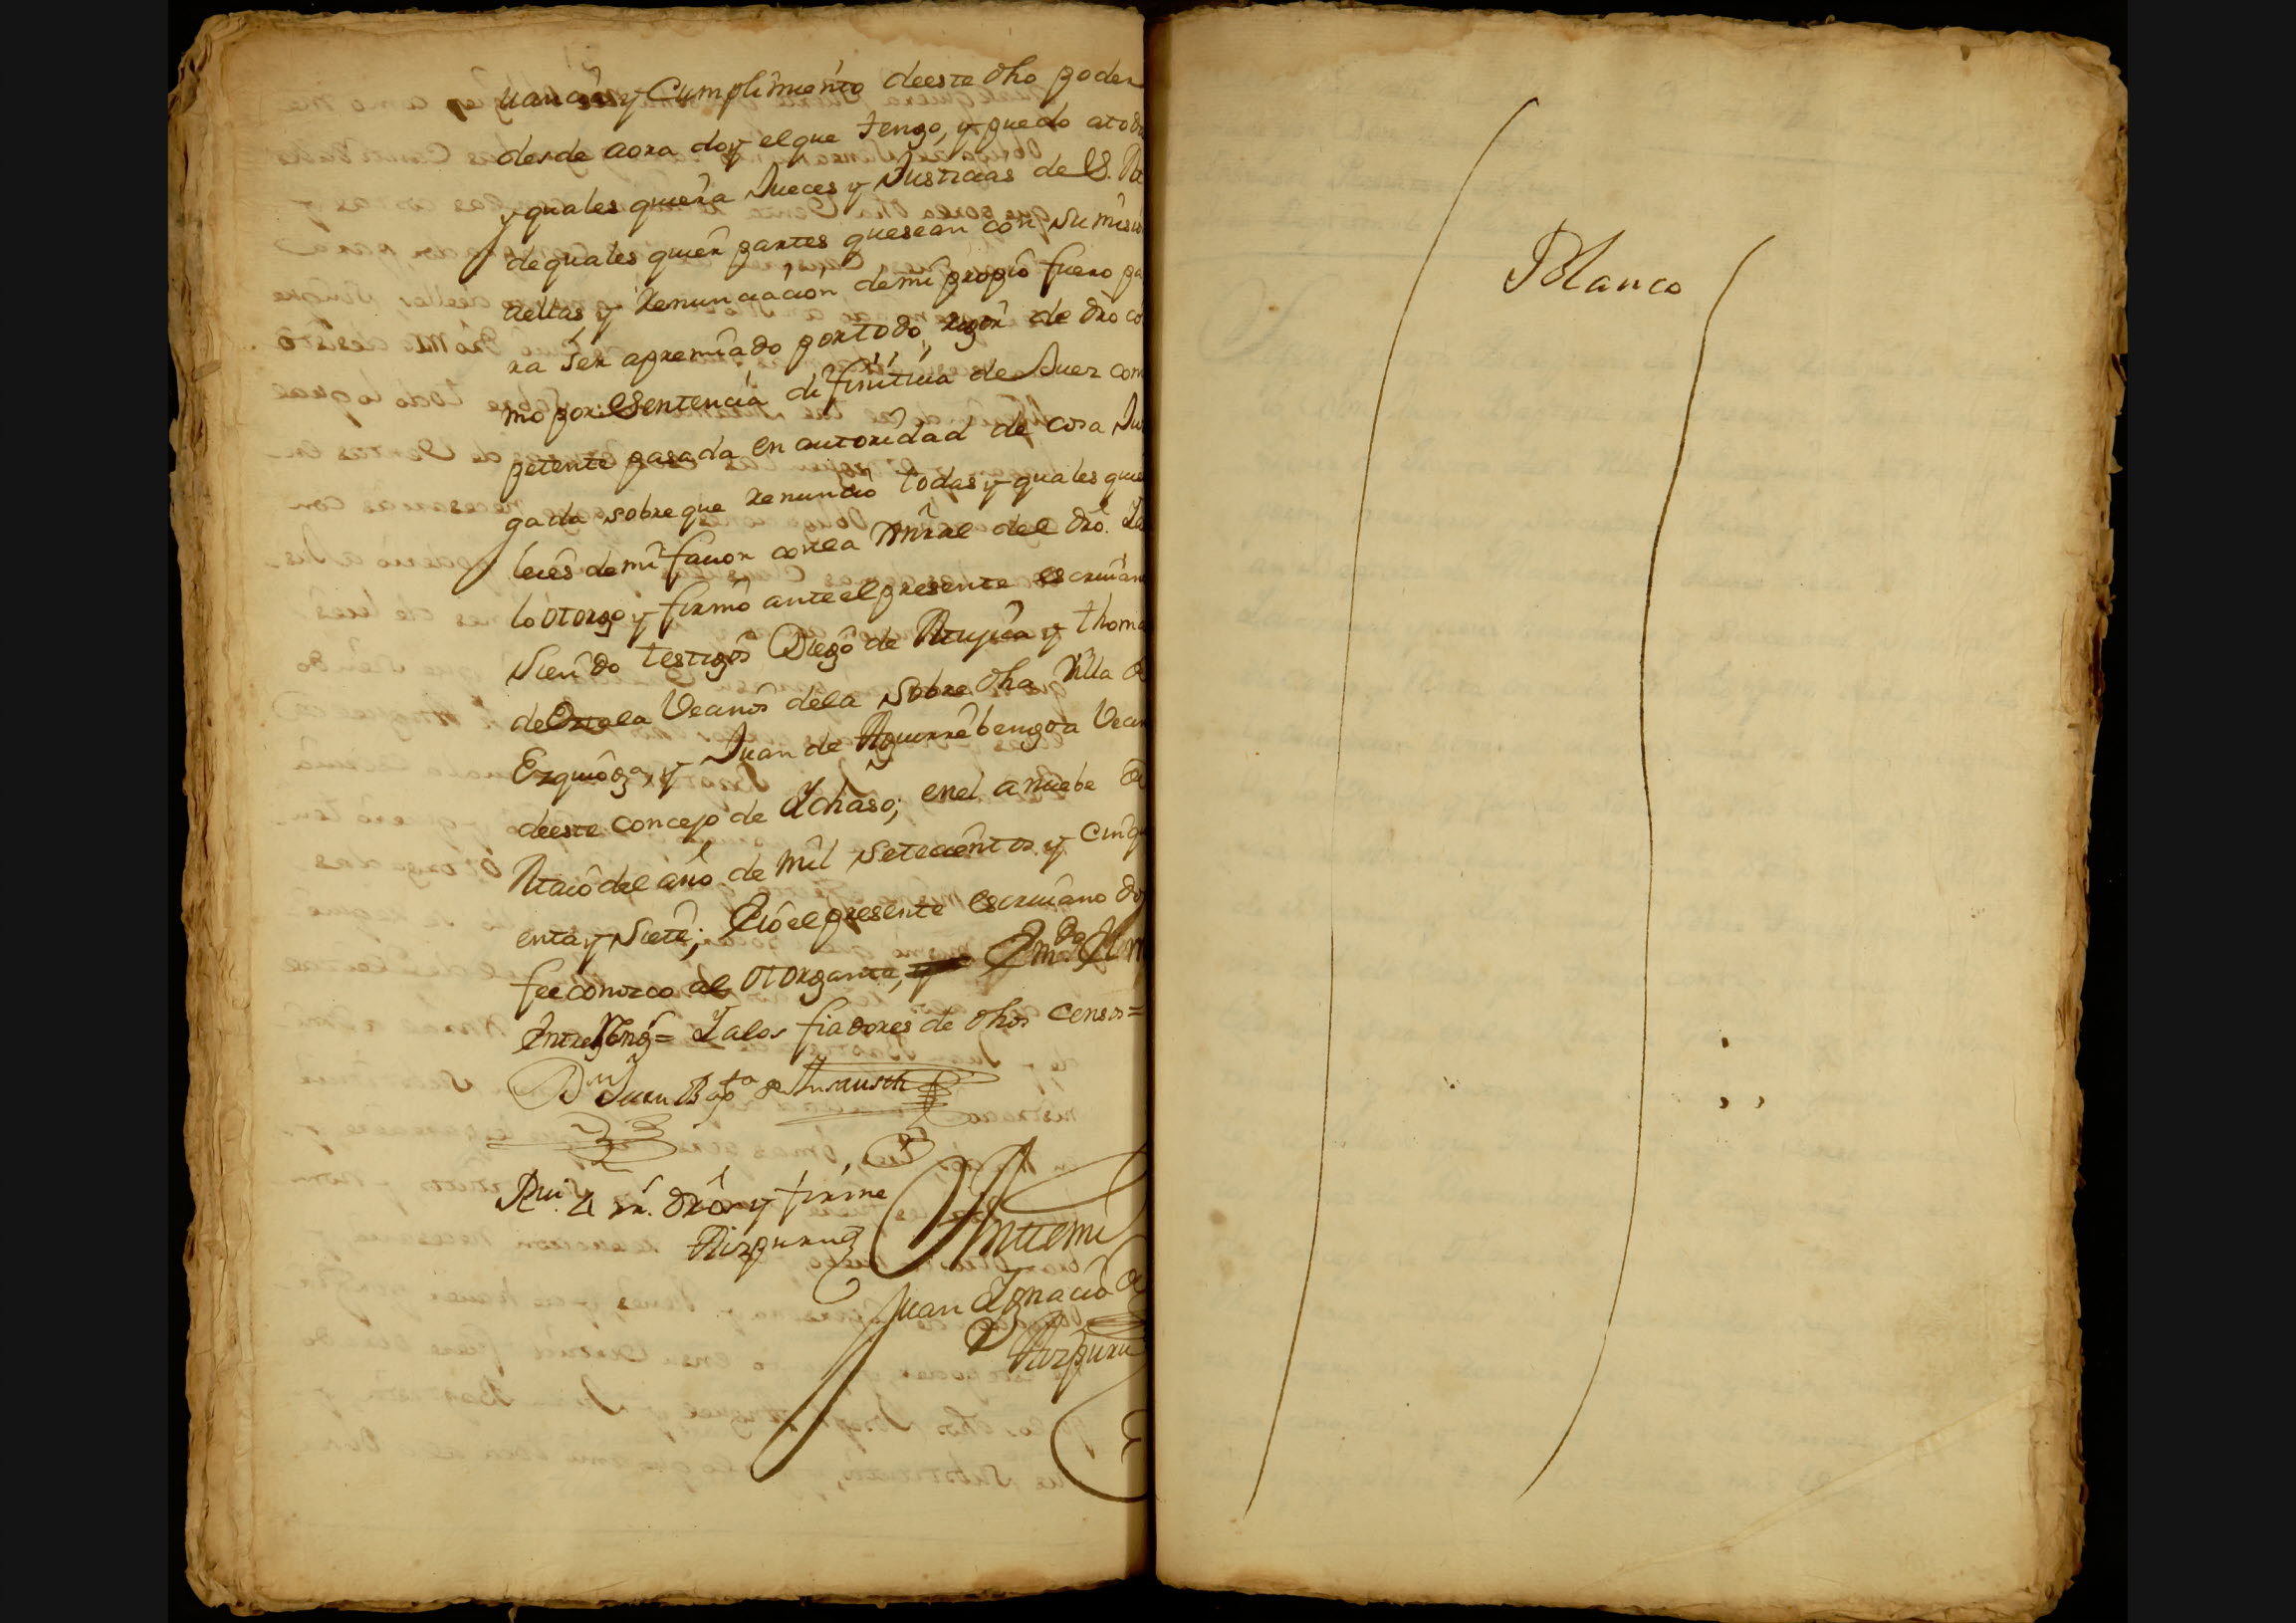 uanciâ y Cumplimiento deeste dho poder
desde aora doy el que tengo, y puedo atodo
y quales quiera Jueces y Justicias de S.
de quales quier partes quesean con Sumisio
dellas y Renunciacion demi propio fuero pa
ra ser apremiado portodo rigor de dro co
mo por Sentencia difinitiua de Juez com
petente pasada en autoridad de cosa Juz
gada sobreque renuncio todas y quales quie
leies demi fauor conla gnral del dro.
lo otorgo y firmô anteel presente escriuano
Siendo testigos Diego de y thoma
de Vecinos dela Sobre dha Villa de
Ezquioga, y Juan de Aguirrebengoa Vecin
deeste concejo de Ichaso; enel a nuebe de
Maio del año de mil setecientos y Cinqu
enta y Siete; Èio el presente escriuano doy
fee conozco al otorgante,
Entre = I alos fiadores de dhos censos =
Dn Juan Bapta de
Rui. 4 rs. drôs y firme
Aizpurua
Antemi
Juan Ignacio de
Aizpurua
Blanco